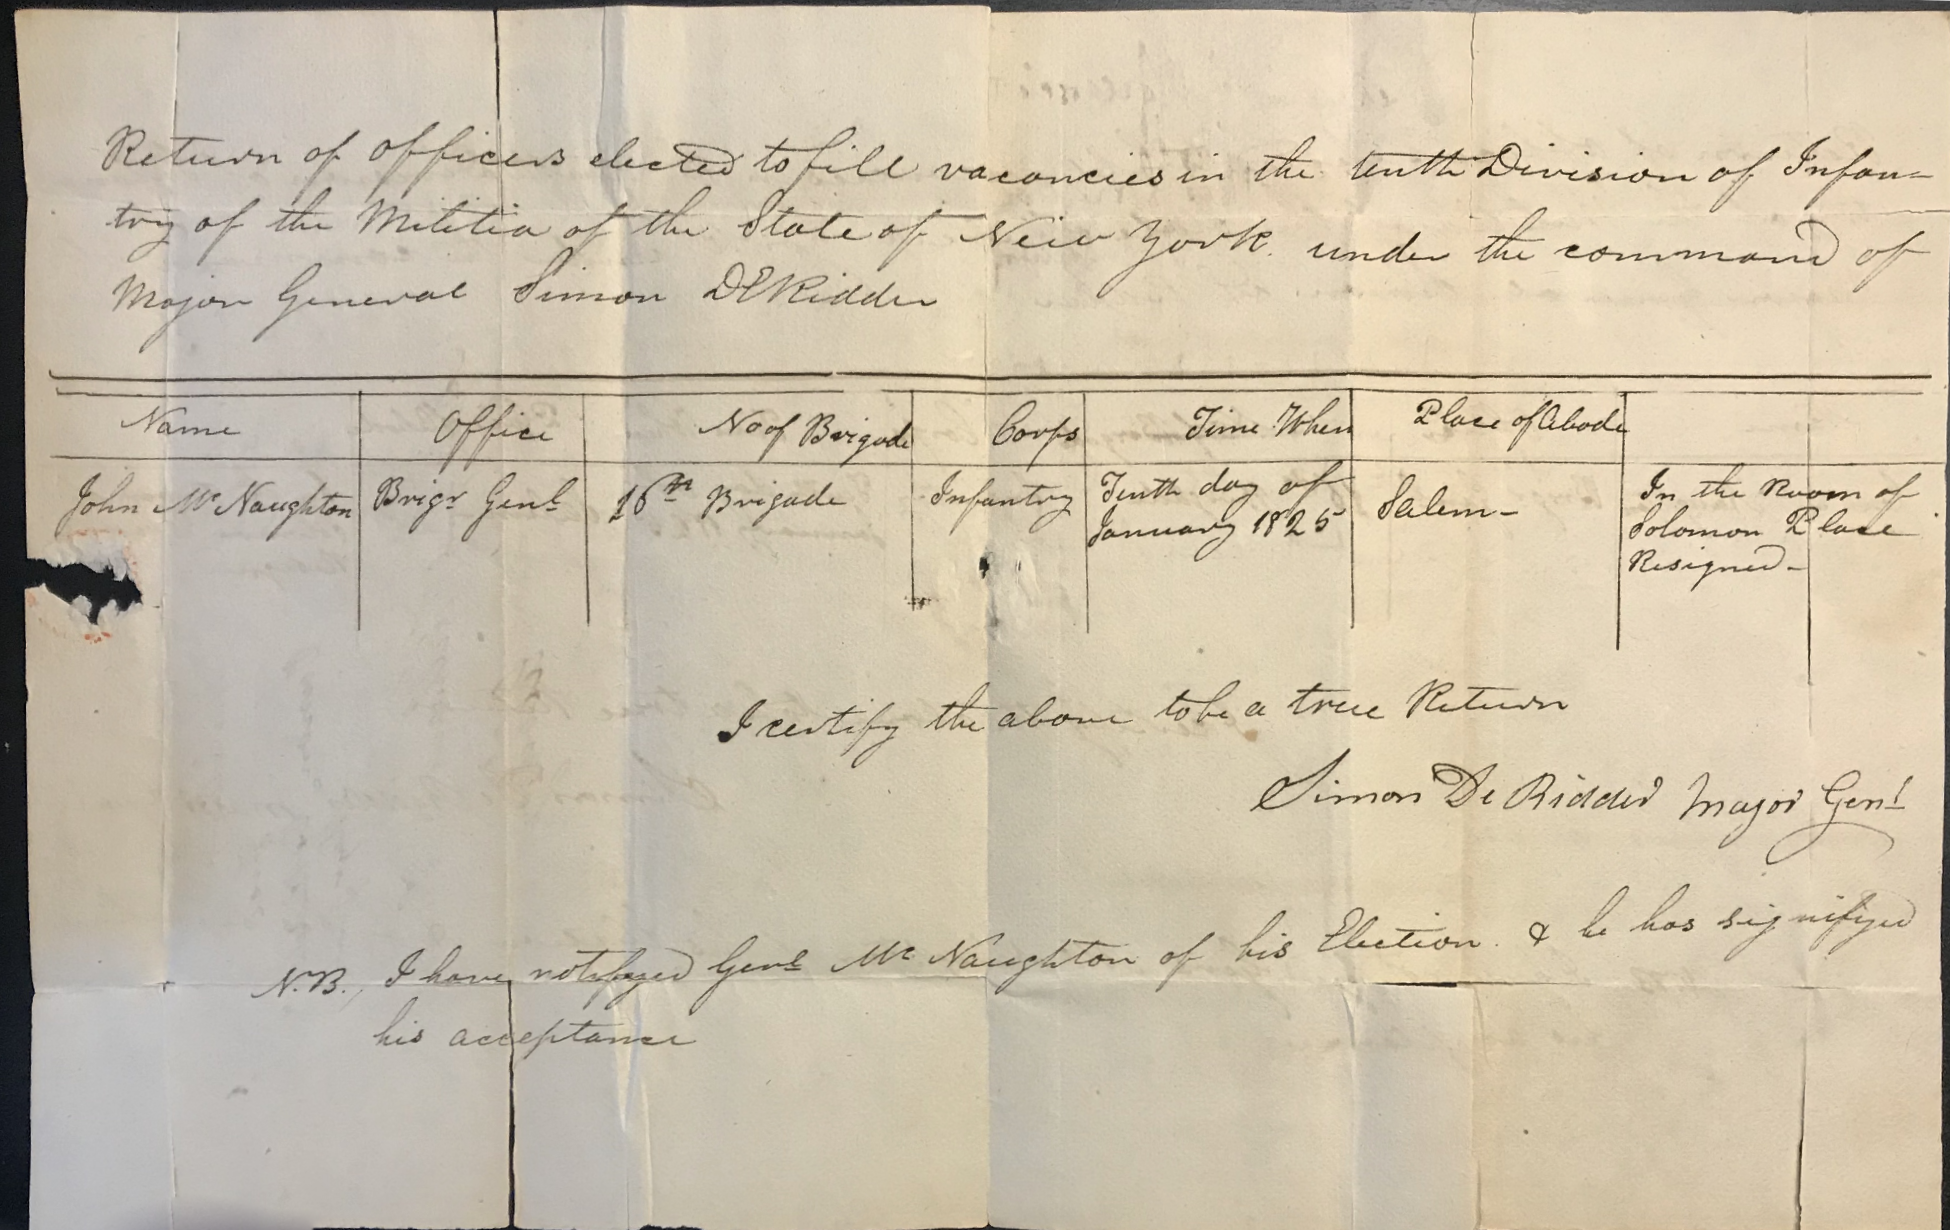 Return of officers elected to fill vacancies in the tenth Division of Infan-
try of the Militia of the State of New York. under the command of
Major General Simon DE Ridder
Name Office No of Brigade Corps Time When Place of Abode
John Mc Naughton Brigr Genl 16th Brigade Infantry Tenth day of January 1825 Salem- In the Room of Solomon Place Resigned-
I certify the above to be a true Return
Simon De Ridder Major Genl
N.B., I have notifyed Genl Mc Naughton of his Election. & he has signifyed
his acceptance